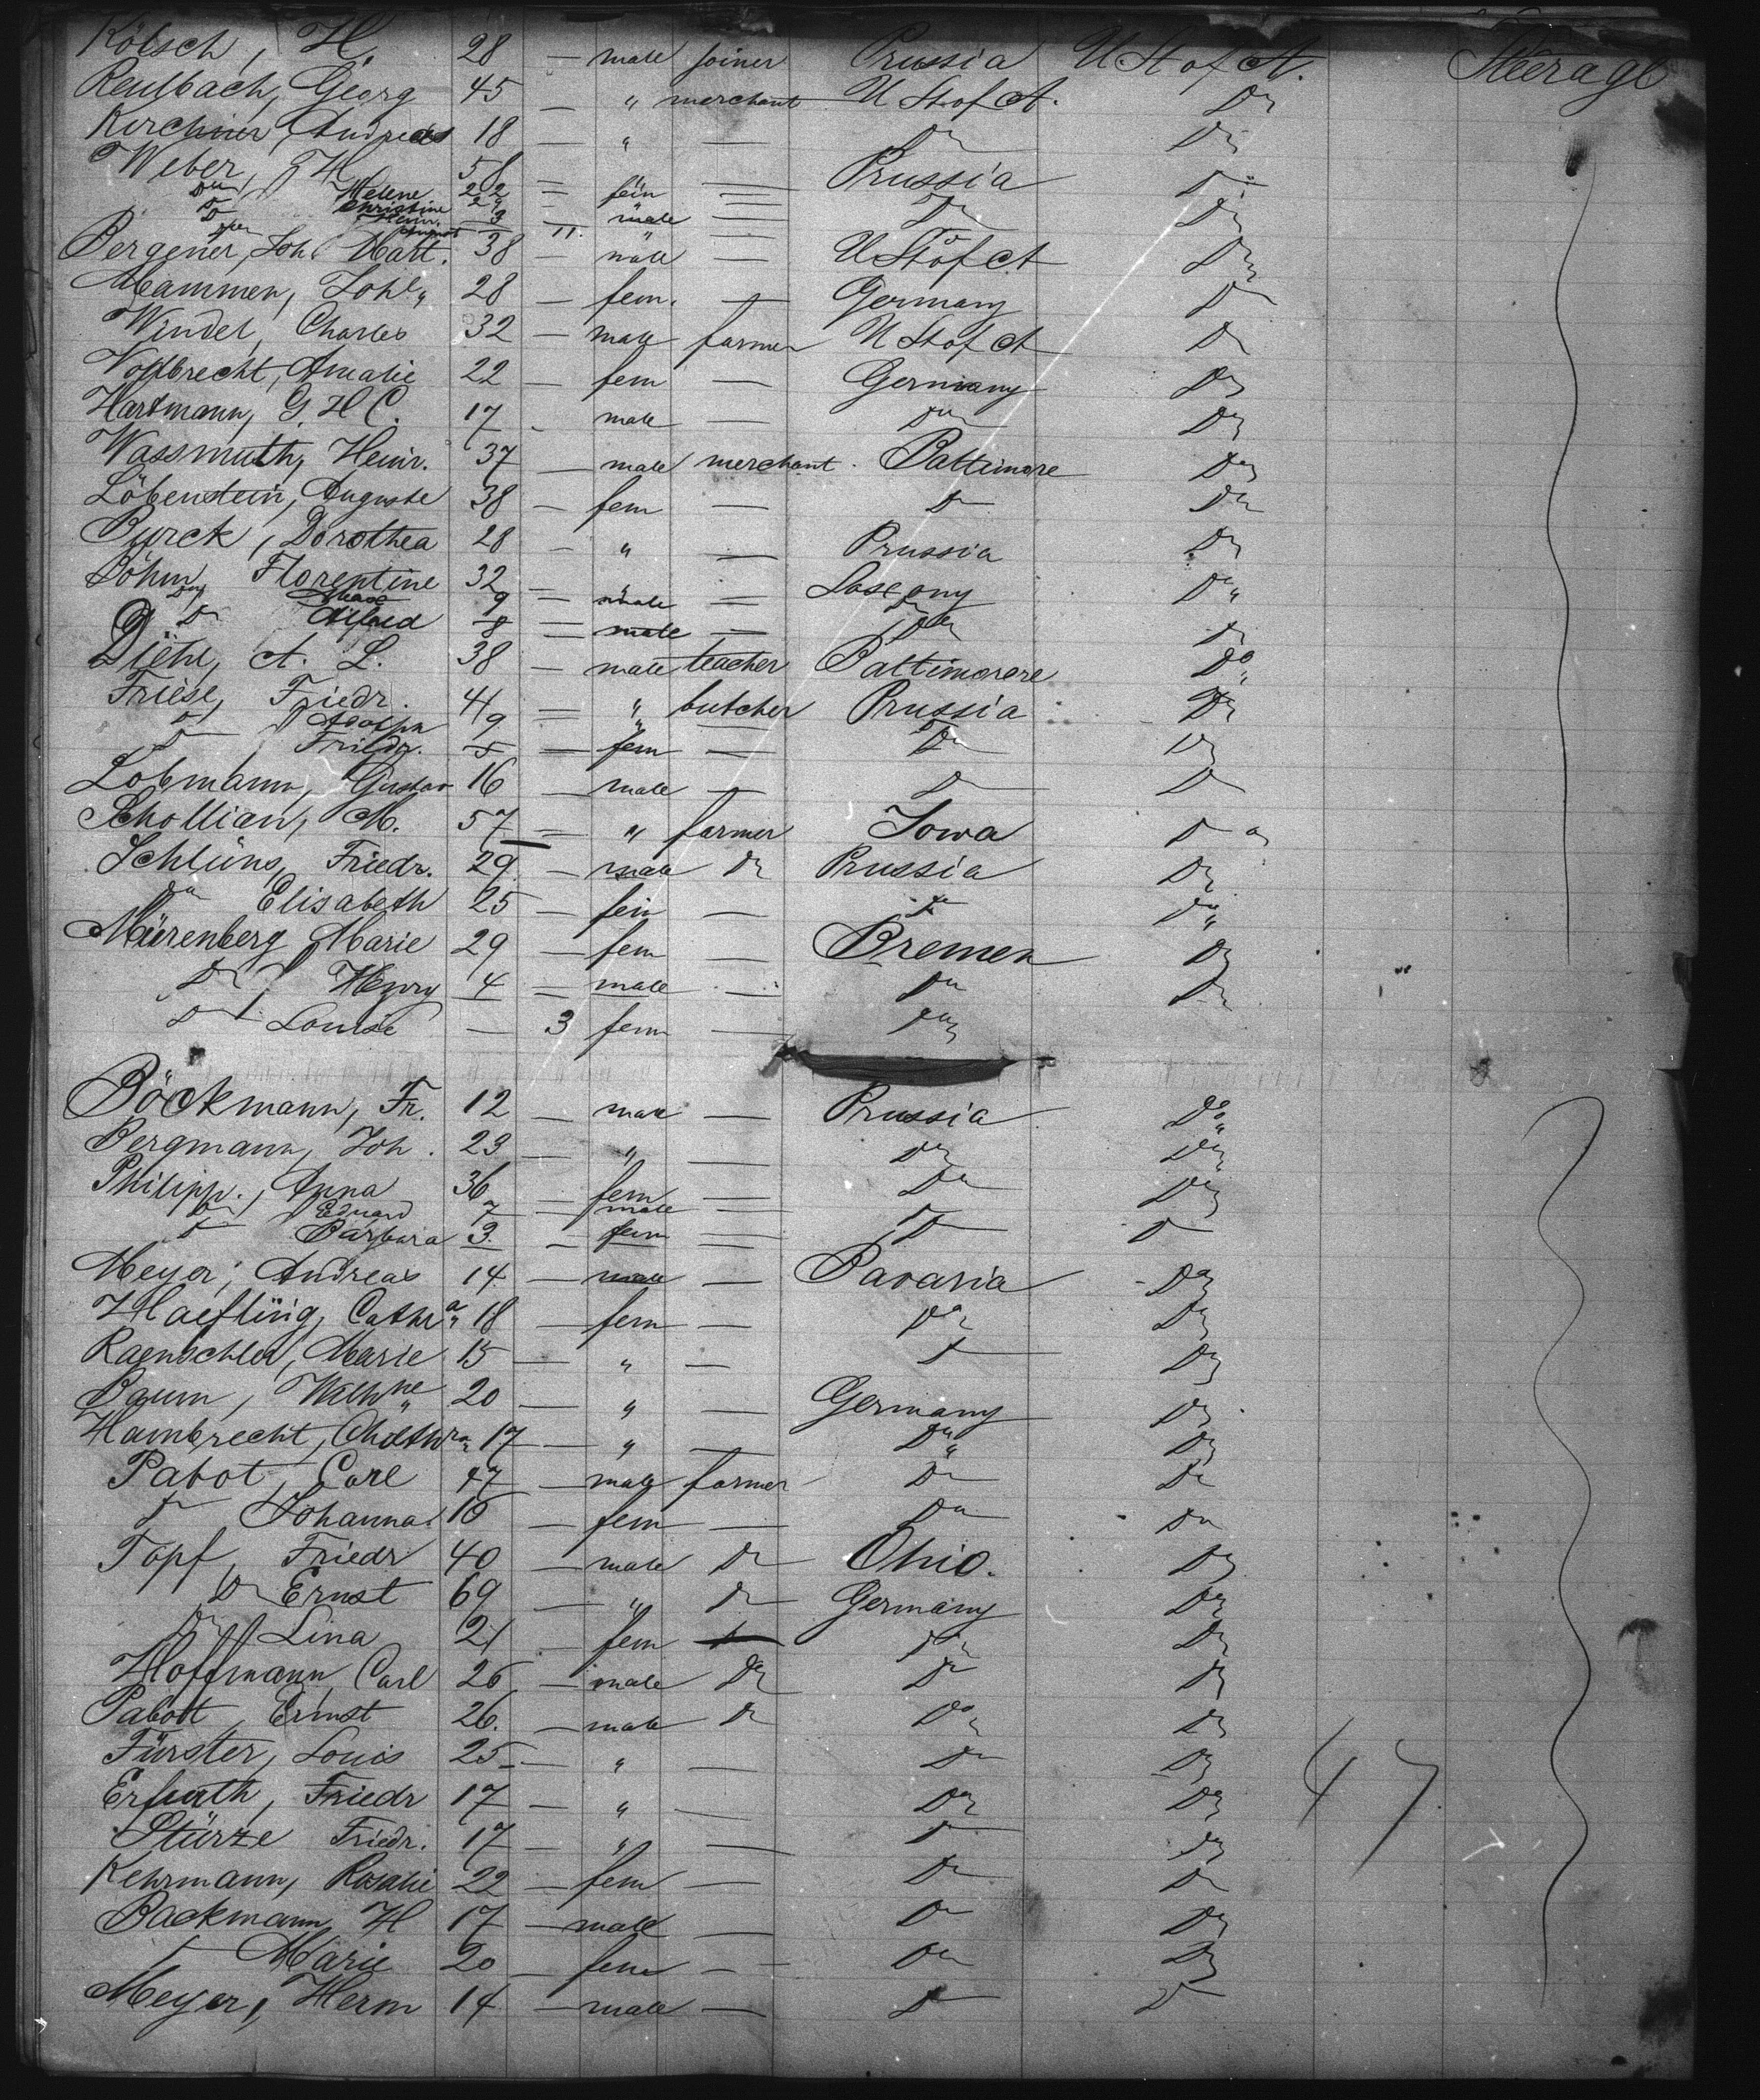 Kölsch, H. 28 — male joiner Prussia U St of A. Steerage
Reulbach, Georg 45 — " merchant U St of A. Do
Kirchner, Andreas 18 — " — Do Do
Weber, H. 58 — " — Prussia Do
Do Helene 22 — fem —
Do Christine
Do Heinr. 3 — male — Do Do
Do August — 11. " —
Bergener, Joh. Matt. 38 — male — U St of A Do
Mammen, Joh. 28 — fem. — Germany Do
Windel, Charles 32 — male farmer U St of A Do
Vollbrecht, Amalie 22 — fem — Germany Do
Hartmann, G. H. C. 17 - male — Do Do
Wassmuth, Heinr. 37 — male merchant. Baltimore Do
Löbenstein, Auguste 38 — fem — Do Do
Burck, Dorothea 28 — " — Prussia Do
Böhm, Florentine 32 — " — Saxony Do
Do Max 9 — male — Do
Do Alfred 8 — male — Do Do
Diehl, A. L. 38 — male teacher Baltimorore Do
Friese, Friedr. 41 — " butcher Prussia Do
Do Adolph 9 — " —
Do Friedr. 5 — fem — Do Do
Lobmann, Gustav 16 — male — Do Do
Schollian, M. 57 — " farmer Iowa Do
Schlüns, Friedr. 29 — male Do Prussia Do
Do Elisabeth 25 — fem — Do Do
Mürenberg Marie 29 — fem — Bremen Do
Do Henry 4 — male — Do Do
Do Louise — 3 fem — Do
Böckmann, Fr. 12 — male — Prussia Do
Bergmann, Joh. 23 — " — Do Do
Philipp., Anna 36 — fem — Do Do
Do Eduard 7 — male — Do
Do Barbara 3 — fem — Do Do
Meyer, Andreas 14 — male — Bavaria Do
Haefling, Cathra 18 — fem — Do Do
Raenschler, Marie 15 — " — Do Do
Baum, Wilhne 20 — " — Germany Do
Hambrecht, 17 — " — Do Do
Pabot, Carl 47 — male farmer Do Do
Do Johanna. — fem — Do Do
Topf, Friedr 40 — male Do Ohio. Do
Do Ernst 69 — " Do Germany Do
Do Lina 21 — fem — Do Do
Hoffmann, Carl 26 — male Do Do Do
Pabott, Ernst 26. — male Do Do Do
Fürster, Louis 25 — " — Do Do 47
Erfurth, Friedr 17 — " — Do Do
Stürze Friedr. 17 — " — Do Do
Kehrmann, Rosalie 22 — fem — Do Do
Backmann, H 17 — male — Do Do
Do Marie 20 — fem — Do Do
Meyer, Herm 14 — male — Do Do